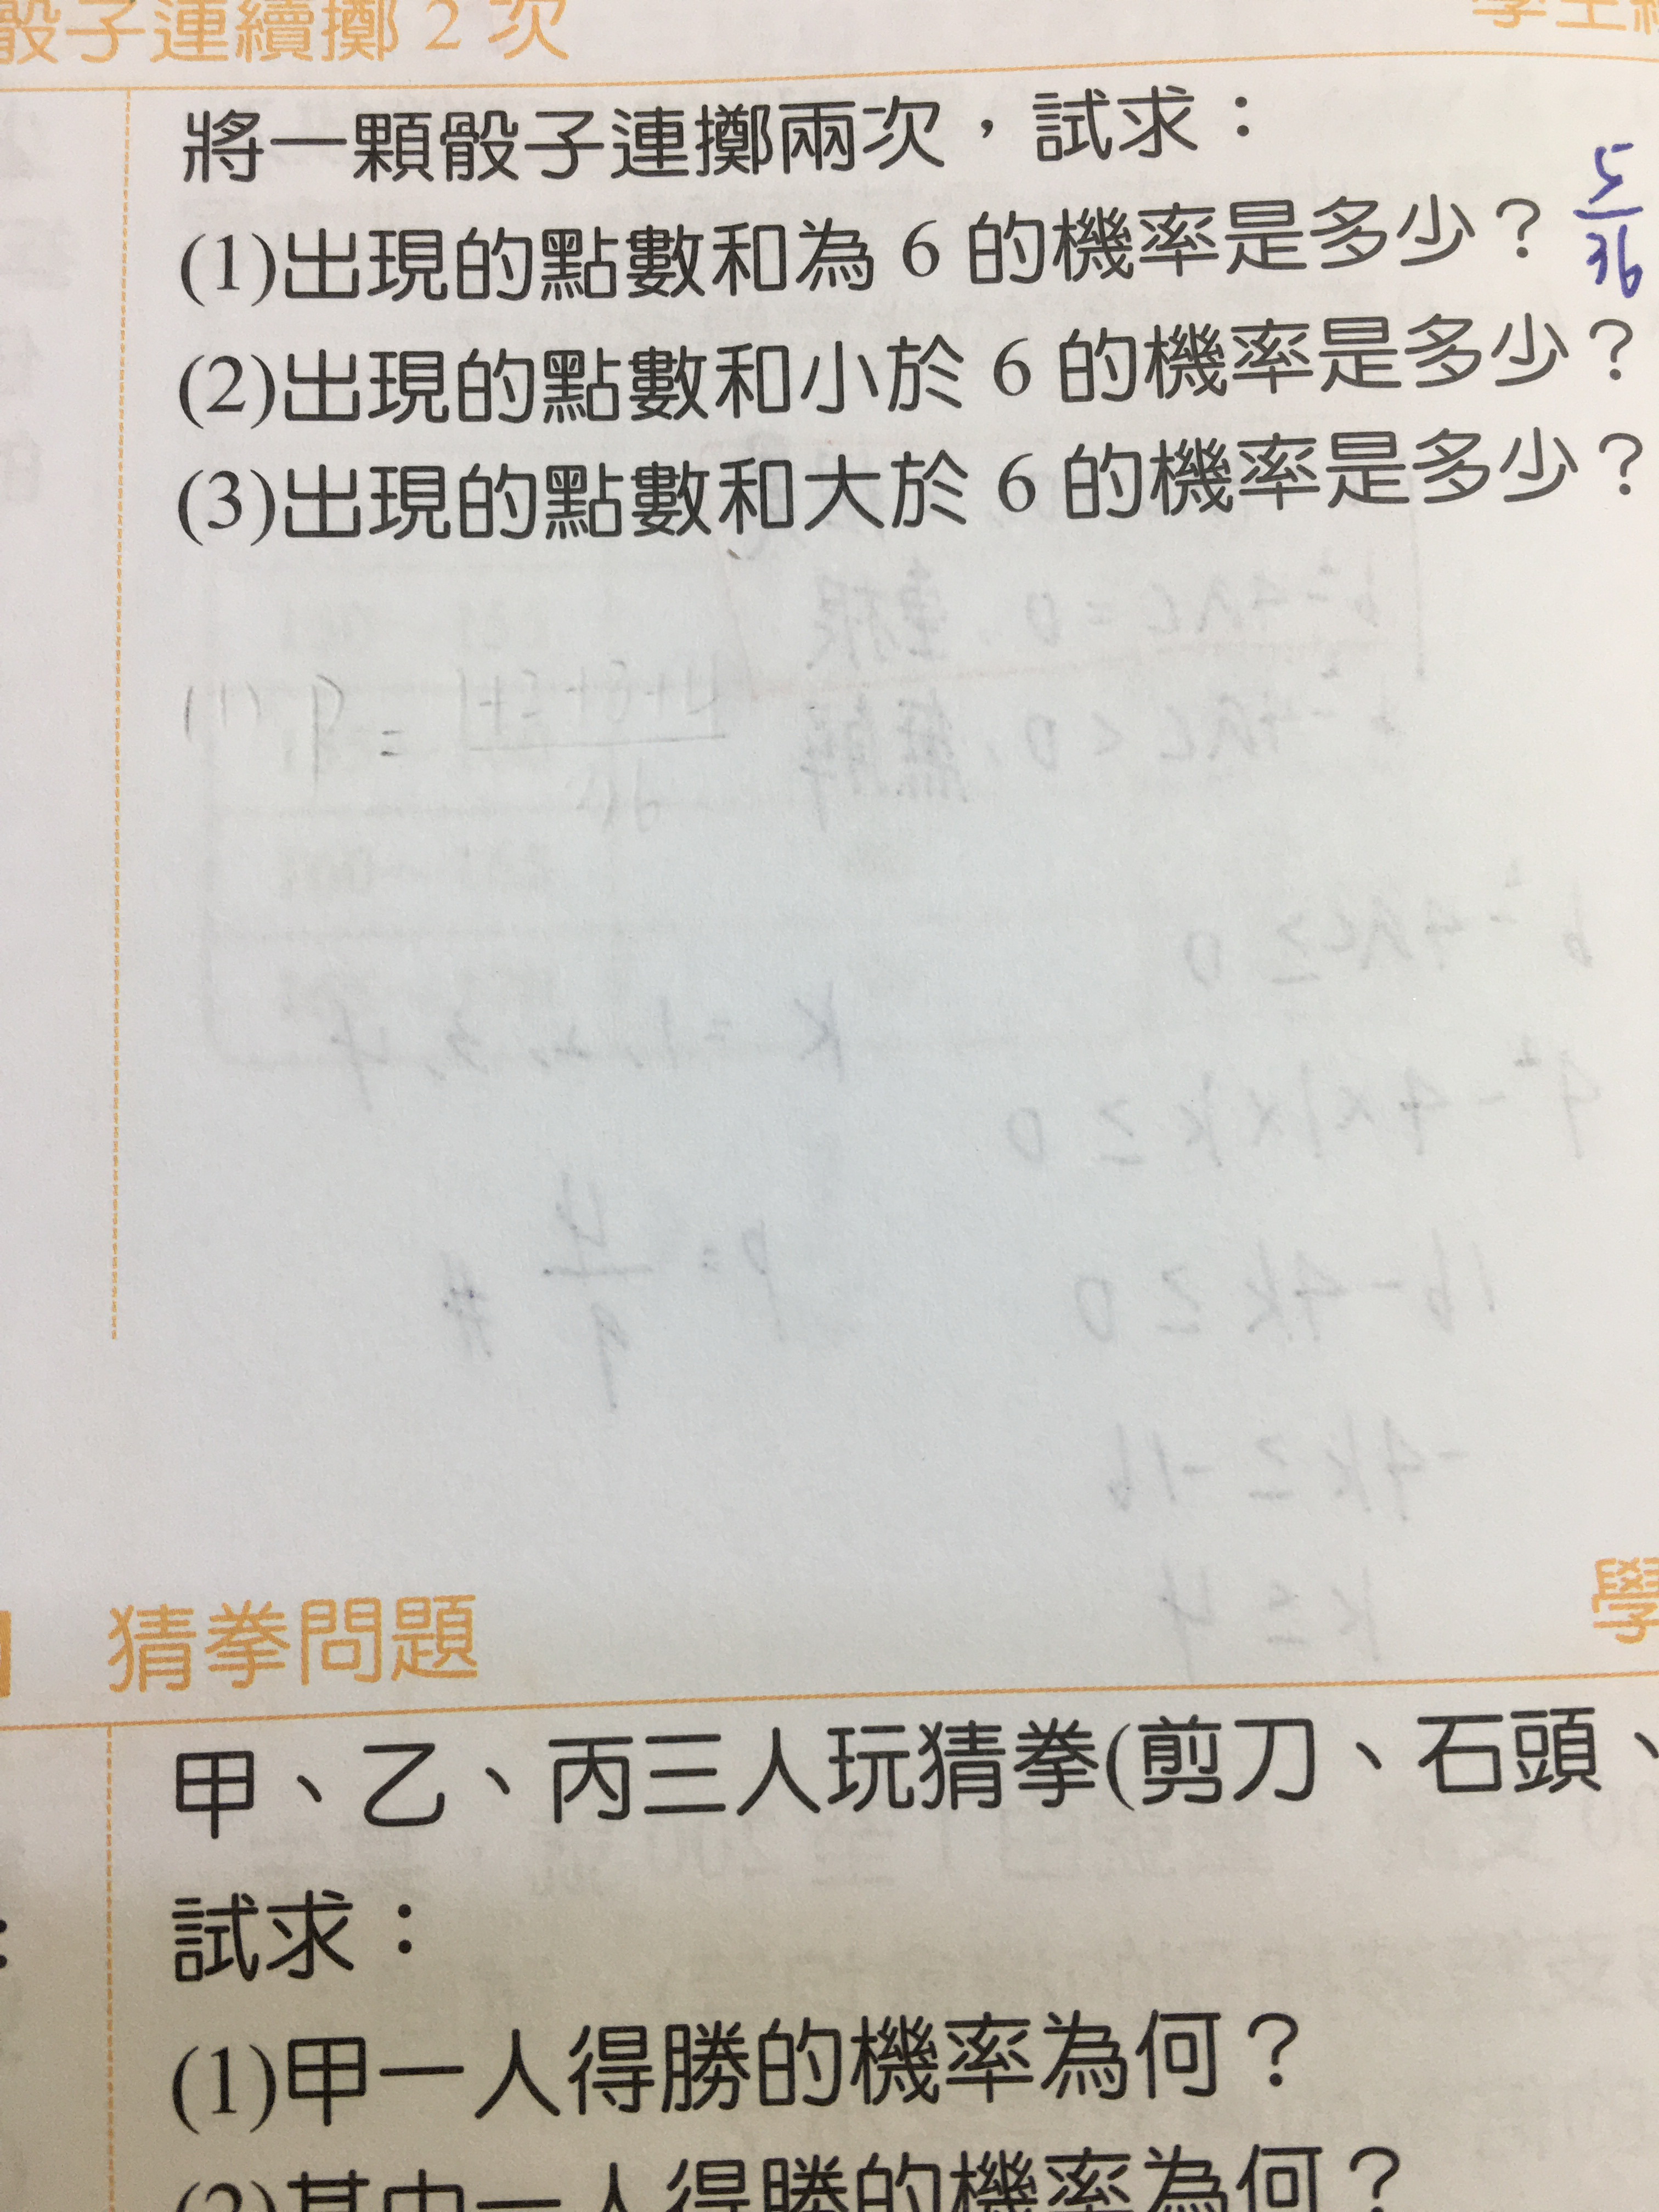 骰子連續擲 2 次
將一顆骰子連擲兩次，試求：
(1)出現的點數和為 6 的機率是多少？ 5/36
(2)出現的點數和小於 6 的機率是多少？
(3)出現的點數和大於 6 的機率是多少？
猜拳問題 學
甲、乙、丙三人玩猜拳(剪刀、石頭、
試求：
(1)甲一人得勝的機率為何？
(2)其中一人得勝的機率為何？